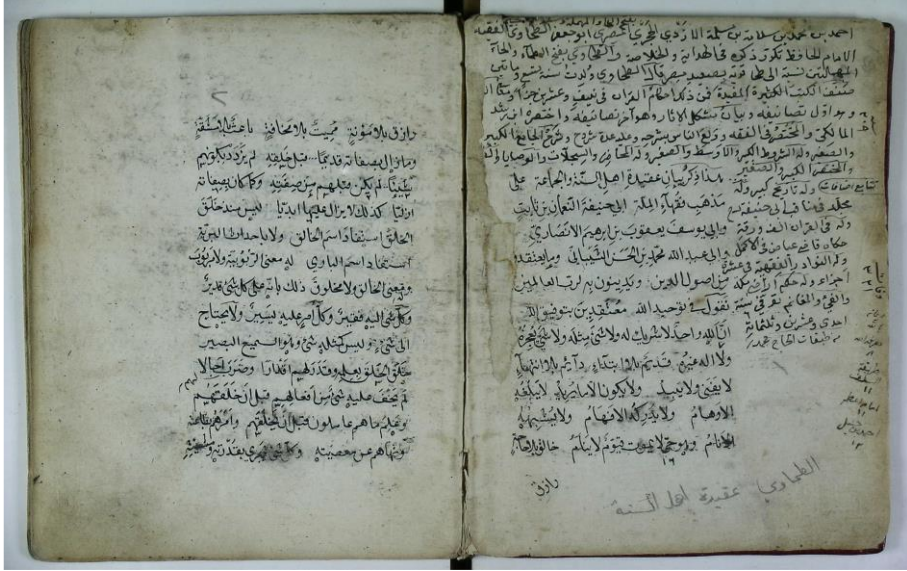 احمد بن محمد بن سلامة بن سلمة الازدي الحجري المصري ابو جعفر الطحاوي الفقيه
الامام الحافظ تكرر ذكره في الهداية والخلاصة والطحاوي بفتح الطاء والحاء
المهملتين نسبة الى طحا قرية بصعيد مصر قال الطحاوي ولدت سنة تسع
صنف الكتب الكثيرة المفيدة فمن ذلك احكام القران في نيف وعشرين جزءا
وهو اول تصانيفه وبيان مشكل الاثار وهو آخر تصانيفه واختصره ابن رشد
المالكي والمختصر في الفقه وولع الناس بشرحه وعليه عدة شروح وشرح الجامع الكبير
والصغير وله الشروط الكبير والاوسط والصغير وله المحاضر والسجلات والوصايا
والمختصر الكبير والصغير
وله تاريخ كبير وله
مجلد في مناقب ابي حنيفة
وله في القران الف ورقة
حكاه القاضي عياض في الاكمال
وله النوادر الفقهية في عشرة
اجزاء وله حكم اراضي مكة
والفيء والغنائم توفي سنة
احدى وعشرين وثلثمائة
هذا ذكر بيان عقيدة اهل السنة والجماعة على
مذهب فقهاء الملة ابي حنيفة النعمان بن ثابت
وابي يوسف يعقوب بن ابرهيم الانصاري
وابي عبد الله محمد بن الحسن الشيباني وما يعتقدون
من اصول الدين ويدينون به لرب العالمين
نقول في توحيد الله معتقدين بتوفيق الله
ان الله واحد لا شريك له ولا شئ مثله ولا شئ يعجزه
ولا اله غيره قديم بلا ابتداء دائم بلا انتهاء
لا يفنى ولا يبيد ولا يكون الا ما يريد لا تبلغه
الاوهام ولا تدركه الافهام ولا يشبهه
الانام حي لا يموت قيوم لا ينام خالق بلا حاجة
رازق
الطحاوي عقيدة اهل السنة
٢
رازق بلا مؤنة مميت بلا مخافة باعث بلا مشقة
وما زال بصفاته قديما قبل خلقه لم يزدد بكونهم
شيئا لم يكن قبلهم من صفته وكما كان بصفاته
ازليا كذلك لا يزال عليها ابديا ليس منذ خلق
الخلق استفاد اسم الخالق ولا باحداث البرية
استفاد اسم الباري له معنى الربوبية ولا مربوب
ومعنى الخالق ولا مخلوق ذلك بانه على كل شئ قدير
وكل شئ اليه فقير وكل امر عليه يسير ولا يحتاج
الى شئ وليس كمثله شئ وهو السميع البصير
خلق الخلق بعلمه وقدر لهم اقدارا وضرب لهم اجالا
لم يخف عليه شئ من افعالهم قبل ان خلقهم
وعلم ما هم عاملون قبل ان يخلقهم وامرهم بطاعته
ونهاهم عن معصيته وكل شئ يجري بقدرته ومشيئته